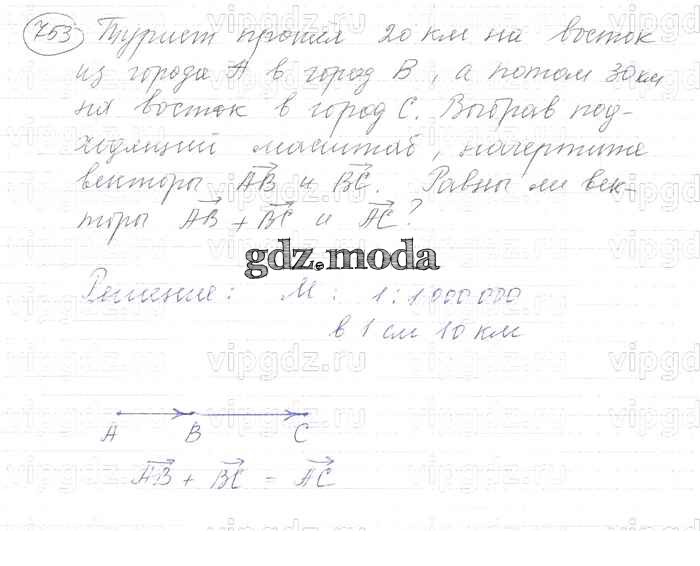 753 Турист прошёл 20 км на восток
из города A в город B, а потом 30 км
на восток в город C. Выбрав под-
ходящий масштаб, начертите
векторы AB и BC. Равны ли век-
торы AB + BC и AC?
gdz.moda
Решение: М: 1:1 000 000
в 1 см 10 км
A B C
AB + BC = AC
vipgdz.ru